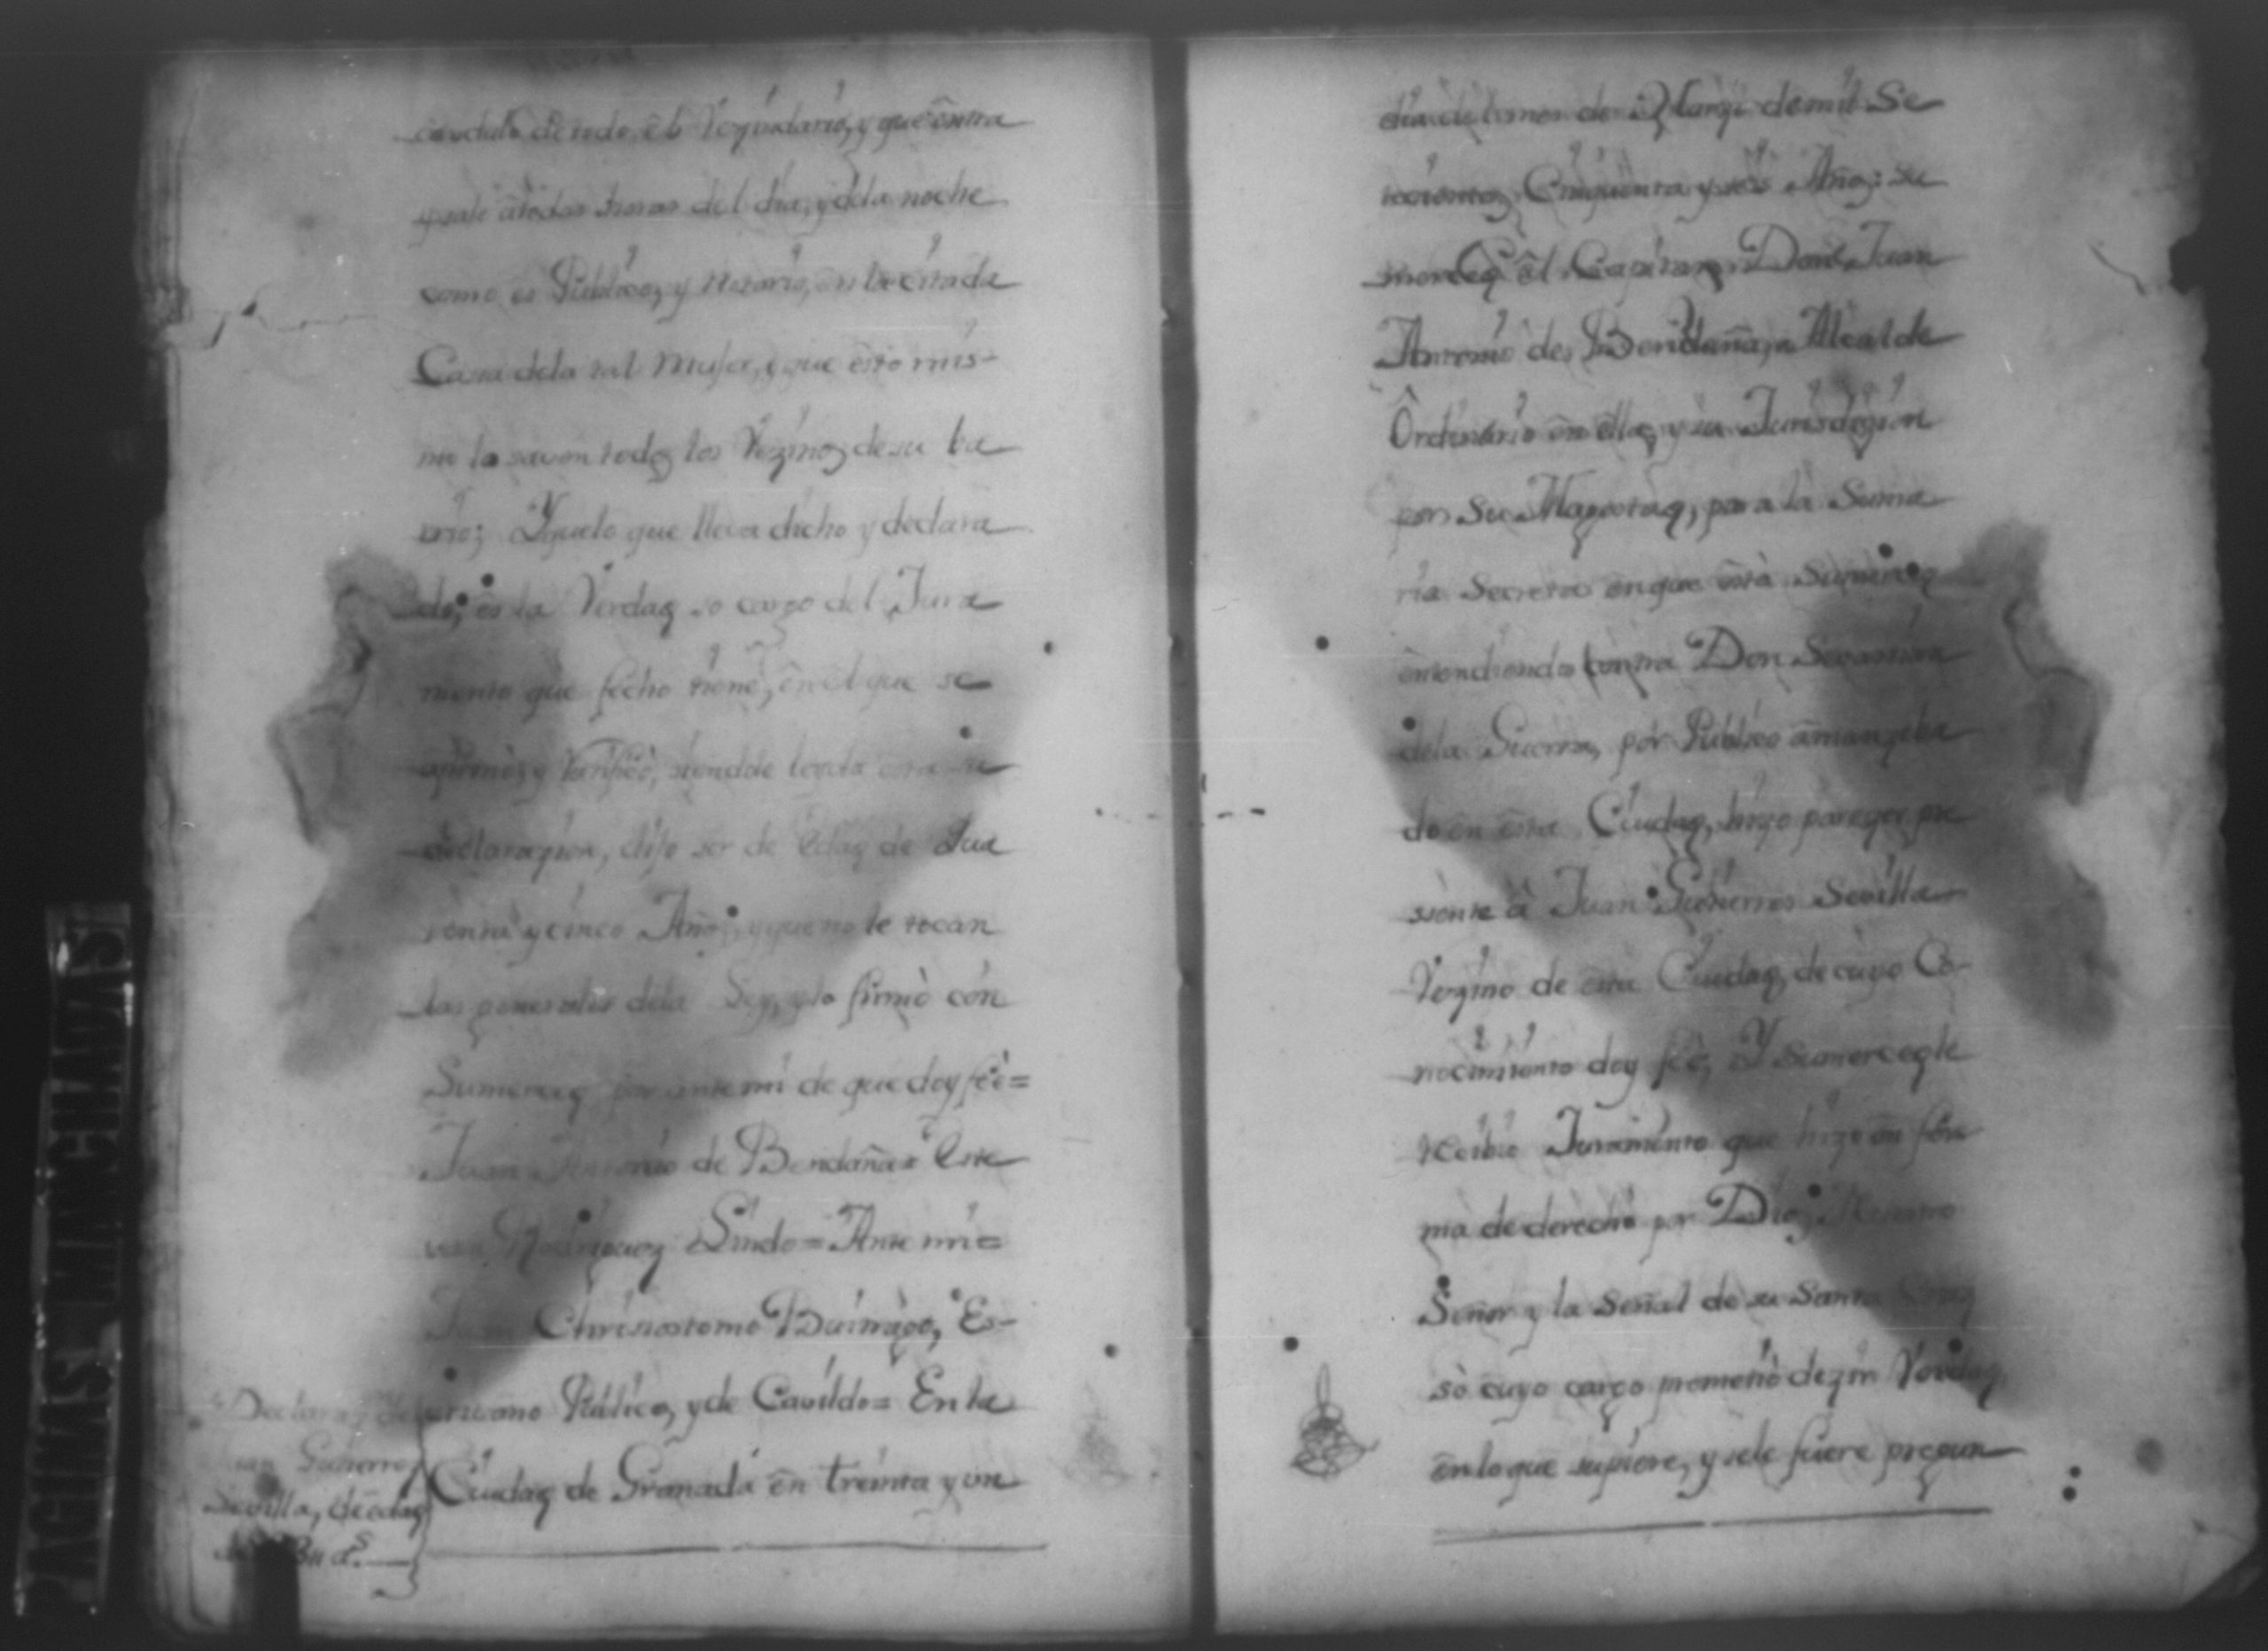 de todo el Vezindario, y que entra
y sale a todas horas del dia, y dela noche
como es Publico, y Notorio, en la citada
Casa dela tal Muger, y que esto mis-
mo lo saven todos los Vezinos de su ba
rrio; Yquelo que lleva dicho y declara
do, es la Verdad so cargo del Jura
mento que fecho tiene, en el que se
afirmó, y Ratificó, siendole leyda esta su
declarazion, dijo ser de edad de qua
renta y cinco Años, y que no le tocan
las generales dela Ley, y lo firmó con
Sumerced por ante mi de que doy feè=
Juan Antonio de Bendaña= Este
van Rodriguez Lindo= Ante mi=
Juan Chrisostomo Buitrago, Es-
crivano Publico, y de Cavildo= En la
Ciudad de Granada en treinta y un
Declarazn. de
Juan Gutierres
Sevilla, de edad
de
dia del mes de Marzo de mil Se
tecientos, Cinquenta y seis Años: su
merced el Capitan, Don Juan
Antonio de Bendaña, Alcalde
Ordinario en ella, y su Jurisdizion
por Su Magestad, para la Suma
ria Secreta en que está Sumerced
entendiendo contra Don Sevastian
dela Guerra, por Publico amanzeba
do en esta Ciudad, hizo parezer pre
sente à Juan Gutierres Sevilla
Vezino de esta Ciudad, de cuyo Co-
nocimiento doy feè, Y Sumerced le
recivio Juramento que hizo en for
ma de derecho por Dios Nuestro
Señor y la Señal de su Santa Cruz
sò cuyo cargo prometiò dezir Verdad,
en lo que supiere, y sele fuere pregun
PAGINAS MANCHADAS